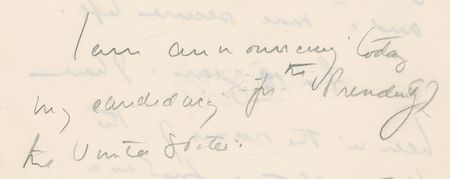 I am announcing today
my candidacy for the Presidency of
the United States.